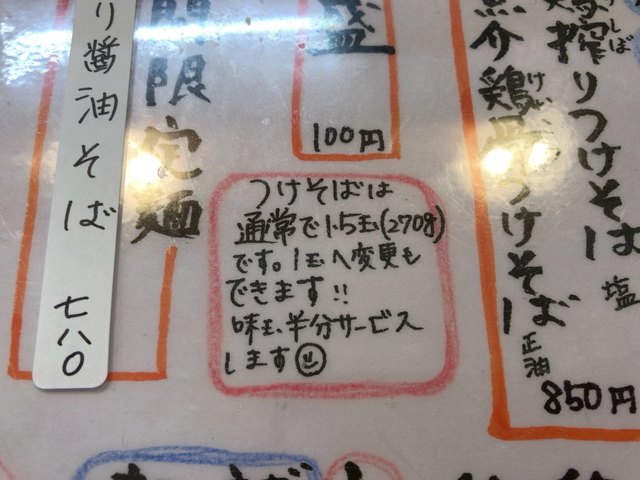 搾りつけそば 塩
魚介鶏 つけそば 正油
850円
盛
100円
間限定麺
り醤油そば 七八〇
つけそばは
通常で1.5玉(270g)
です。1玉へ変更も
できます!!
味玉半分サービス
します